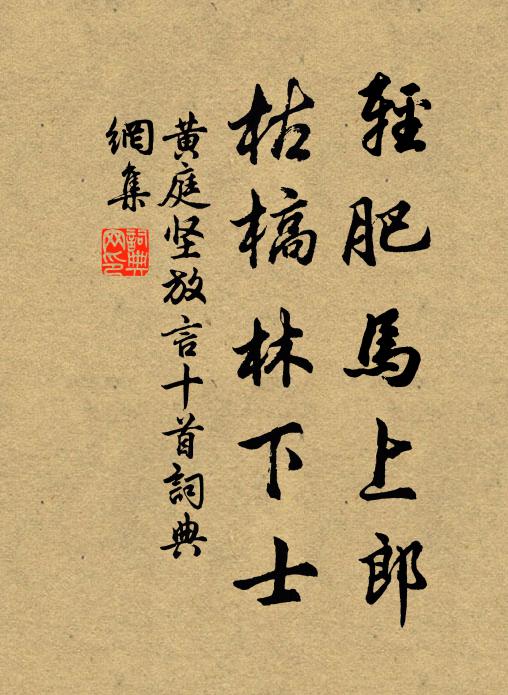 輕肥馬上郎
枯槁林下士
黃庭坚放言十首詞典
網集
詞典網印